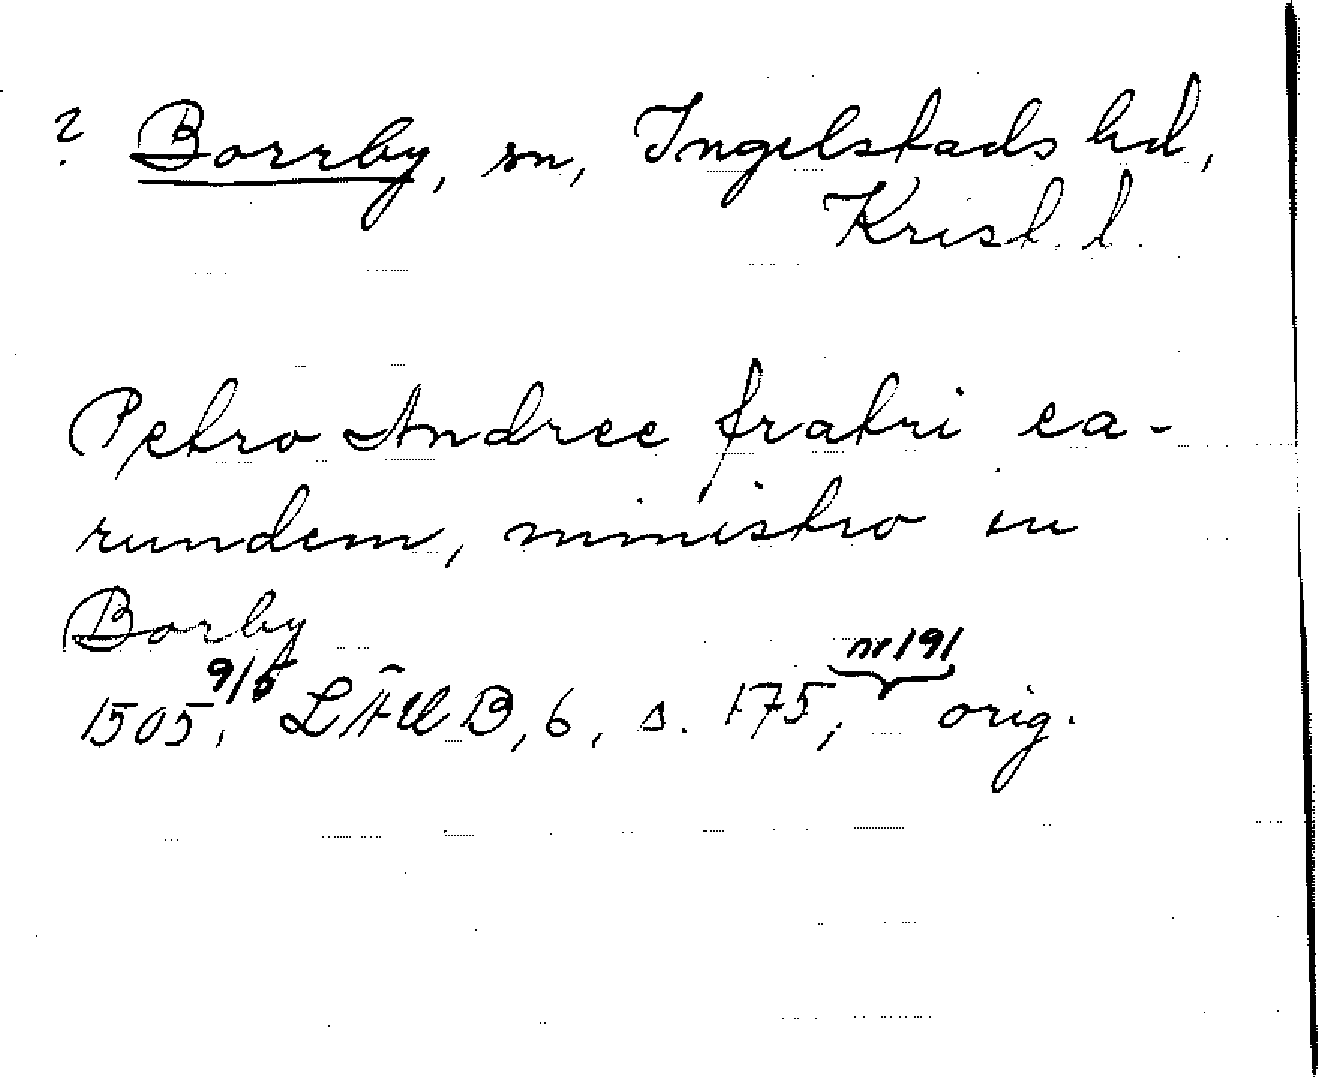 ? Borrby, sn, Ingelstads hd,
Krist. l.
Petro Andree fratri ea-
rundem, ministro in
Borby
1505 9/5, LÄUB, 6, s. 175, nr 191 orig.